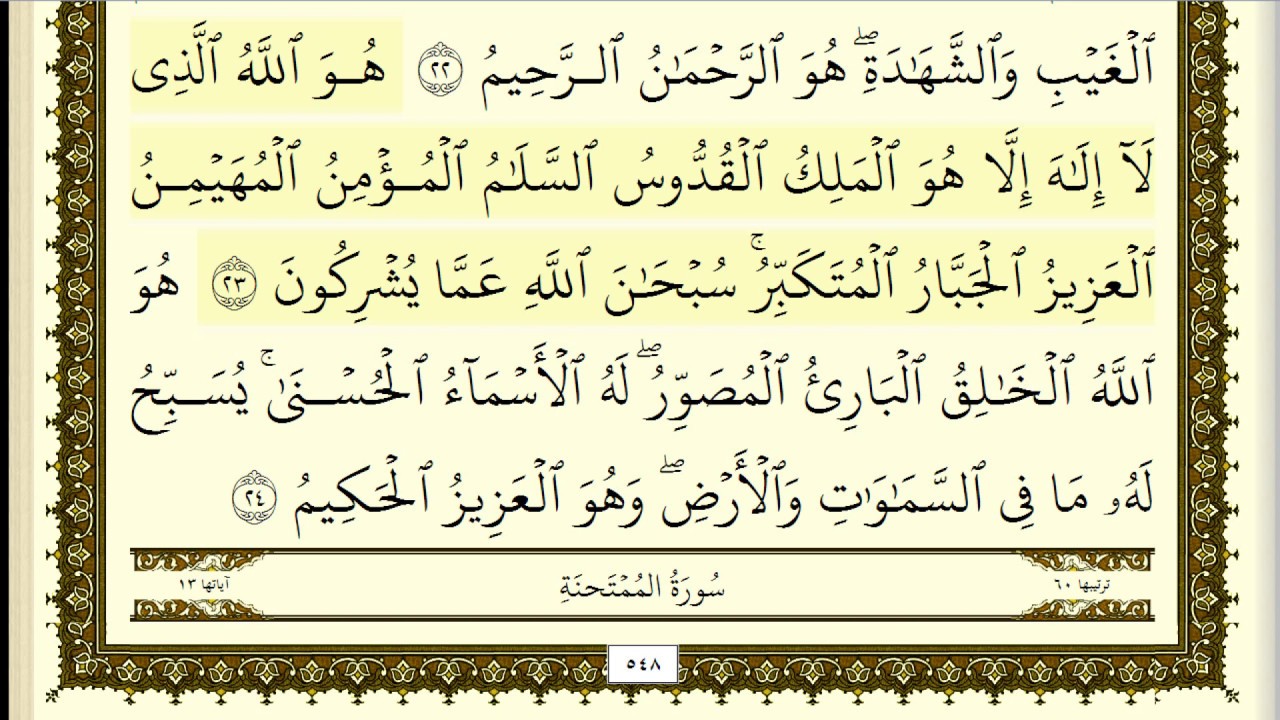 ٱلْغَيْبِ وَٱلشَّهَٰدَةِۖ هُوَ ٱلرَّحْمَٰنُ ٱلرَّحِيمُ ٢٢ هُوَ ٱللَّهُ ٱلَّذِى
لَآ إِلَٰهَ إِلَّا هُوَ ٱلْمَلِكُ ٱلْقُدُّوسُ ٱلسَّلَٰمُ ٱلْمُؤْمِنُ ٱلْمُهَيْمِنُ
ٱلْعَزِيزُ ٱلْجَبَّارُ ٱلْمُتَكَبِّرُۚ سُبْحَٰنَ ٱللَّهِ عَمَّا يُشْرِكُونَ ٢٣ هُوَ
ٱللَّهُ ٱلْخَٰلِقُ ٱلْبَارِئُ ٱلْمُصَوِّرُۖ لَهُ ٱلْأَسْمَآءُ ٱلْحُسْنَىٰۚ يُسَبِّحُ
لَهُۥ مَا فِى ٱلسَّمَٰوَٰتِ وَٱلْأَرْضِۖ وَهُوَ ٱلْعَزِيزُ ٱلْحَكِيمُ ٢٤
ترتيبها ٦٠ سُورَةُ المُمْتَحنَةِ آياتها ١٣
٥٤٨